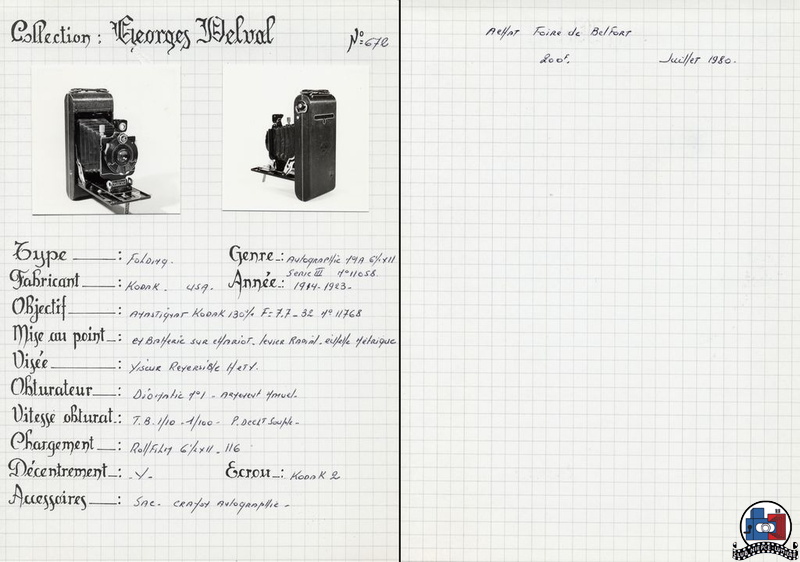 Collection : Georges Delval
N° 672
Type : Folding.
Genre : Autographic N°1A 6½x11
Serie III N°11058
Fabricant : Kodak. USA.
Année : 1914-1923-
Objectif : Anastigmat Kodak 130% F=7.7-32 N°11768
Mise au point : et Batterie sur chariot. levier Radial. echelle Métrique
Visée : Viseur Reversible
Obturateur : Diomatic N°1 - Armement Manuel.
Vitesse obturat. : T.B. 1/10 - 1/100 - P. Declt Souple-
Chargement : Rollfilm 6½x11 - 116
Décentrement : -V-
Ecrou : Kodak 2
Accessoires : Sac. crayon autographic -
Achat Foire de Belfort
200f. Juillet 1980.